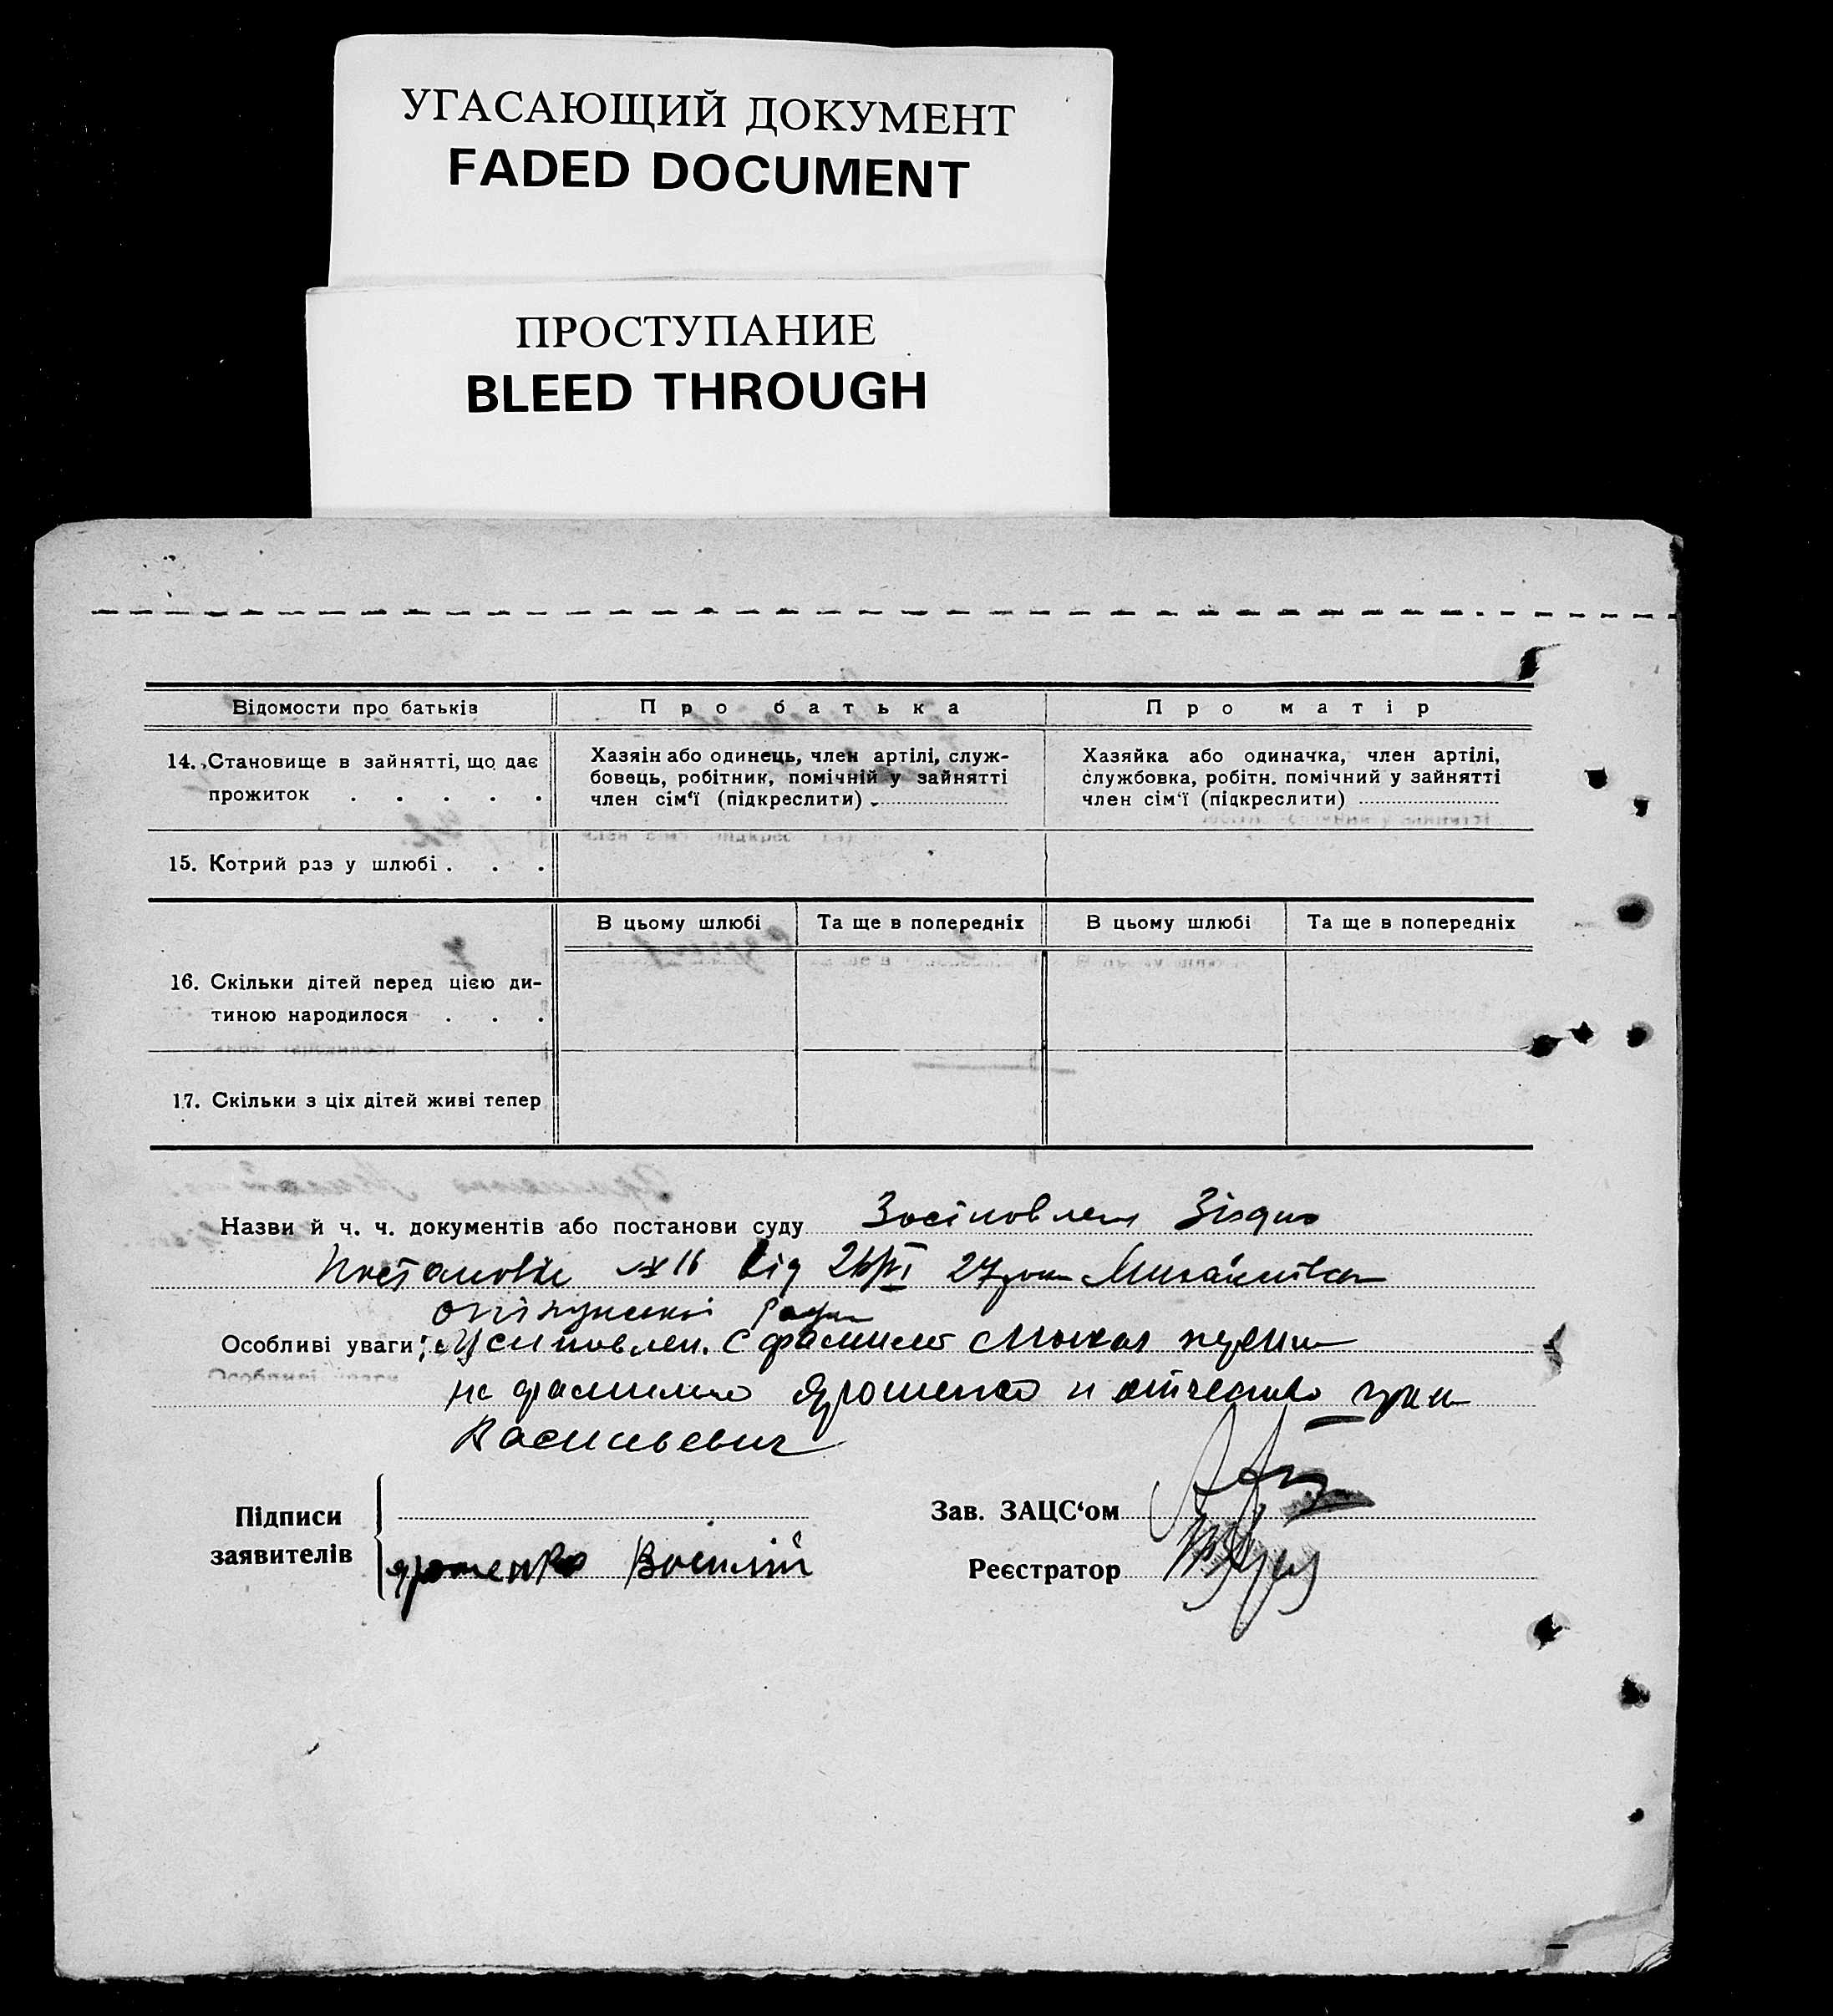 УГАСАЮЩИЙ ДОКУМЕНТ
FADED DOCUMENT
ПРОСТУПАНИЕ
BLEED THROUGH
Відомости про батьків Про батька Про матір
14. Становище в зайнятті, що дає прожиток . . . . .
Хазяін або одинець, член артілі, служ-
бовець, робітник, помічній у зайнятті
член сім‘ї (підкреслити)
Хазяйка або одиначка, член артілі,
службовка, робітн. помічний у зайнятті
член сім‘ї (підкреслити)
15. Котрий раз у шлюбі . . .
В цьому шлюбі Та ще в попередніх В цьому шлюбі Та ще в попередніх
16. Скільки дітей перед цією ди-
тиною народилося . . .
17. Скільки з ціх дітей живі тепер
Назви й ч. ч. документів або постанови суду Зосіновлен Зіздно
Постанови №16 від 26/VI 27 року
опікунської Ради
Особливі уваги: Усиновлен. с фамилие
на фамилию Ярошенко и отчество
Васильевич
Підписи
заявителів
Ярошенко Василій
Зав. ЗАЦС‘ом
Реєстратор